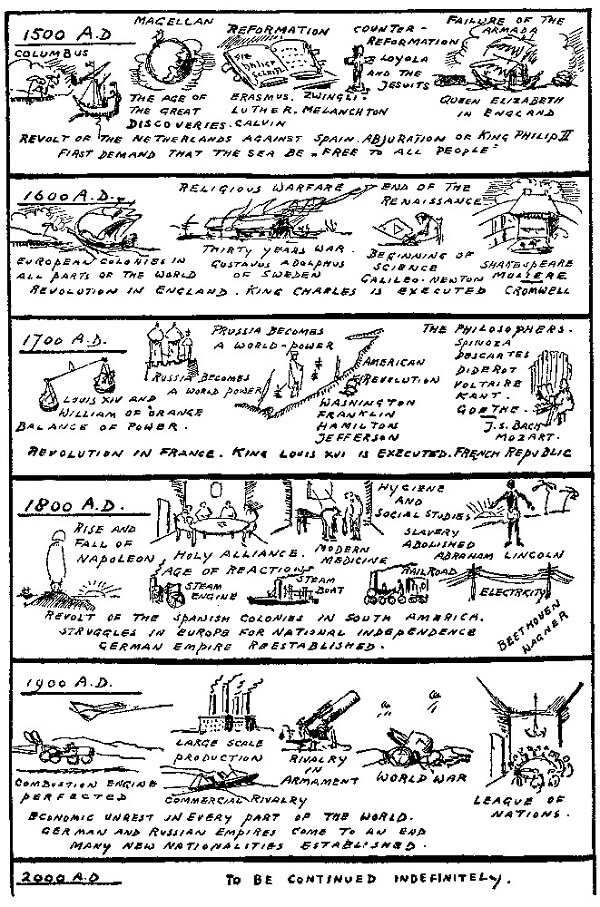 1500 A.D
COLUMBUS
MAGELLAN
THE AGE OF
THE GREAT
DISCOVERIES.
REFORMATION
DIE
BIBLIA
ERASMUS. ZWINGLI.
LUTHER, MELANCHTON
CALVIN
COUNTER-
REFORMATION
LOYOLA
AND THE
JESUITS
FAILURE OF THE
ARMADA
QUEEN ELIZABETH
IN ENGLAND
REVOLT OF THE NETHERLANDS AGAINST SPAIN. ABJURATION OF KING PHILIP II
FIRST DEMAND THAT THE SEA BE „FREE TO ALL PEOPLE"
1600 A.D.
EUROPEAN COLONIES IN
ALL PARTS OF THE WORLD
RELIGIOUS WARFARE
THIRTY YEARS WAR.
GUSTAVUS ADOLPHUS
OF SWEDEN
END OF THE
RENAISSANCE
BEGINNING OF
SCIENCE
GALILEO-NEWTON
SHAKESPEARE
MOLIERE
CROMWELL
REVOLUTION IN ENGLAND. KING CHARLES IS EXECUTED
1700 A.D.
LOUIS XIV AND
WILLIAM OF ORANGE
BALANCE OF POWER.
RUSSIA BECOMES
A WORLD POWER
PRUSSIA BECOMES
A WORLD-POWER
AMERICAN
REVOLUTION
WASHINGTON
FRANKLIN
HAMILTON
JEFFERSON
THE PHILOSOPHERS.
SPINOZA
DESCARTES
DIDEROT
VOLTAIRE
KANT.
GOETHE.
J.S. BACH
MOZART.
REVOLUTION IN FRANCE. KING LOUIS XVI IS EXECUTED. FRENCH REPUBLIC
1800 A.D.
RISE AND
FALL OF
NAPOLEON
HOLY ALLIANCE.
AGE OF REACTION
MODERN
MEDICINE
HYGIENE
AND
SOCIAL STUDIES
SLAVERY
ABOLISHED
ABRAHAM LINCOLN
STEAM
ENGINE
STEAM
BOAT
RAILROAD
ELECTRICITY
REVOLT OF THE SPANISH COLONIES IN SOUTH AMERICA.
STRUGGLES IN EUROPE FOR NATIONAL INDEPENDENCE
GERMAN EMPIRE REESTABLISHED.
BEETHOVEN
WAGNER
1900 A.D.
COMBUSTION ENGINE
PERFECTED
LARGE SCALE
PRODUCTION
COMMERCIAL RIVALRY
RIVALRY
IN
ARMAMENT
WORLD WAR
LEAGUE OF
NATIONS.
ECONOMIC UNREST IN EVERY PART OF THE WORLD.
GERMAN AND RUSSIAN EMPIRES COME TO AN END
MANY NEW NATIONALITIES ESTABLISHED.
2000 A.D
TO BE CONTINUED INDEFINITELY.